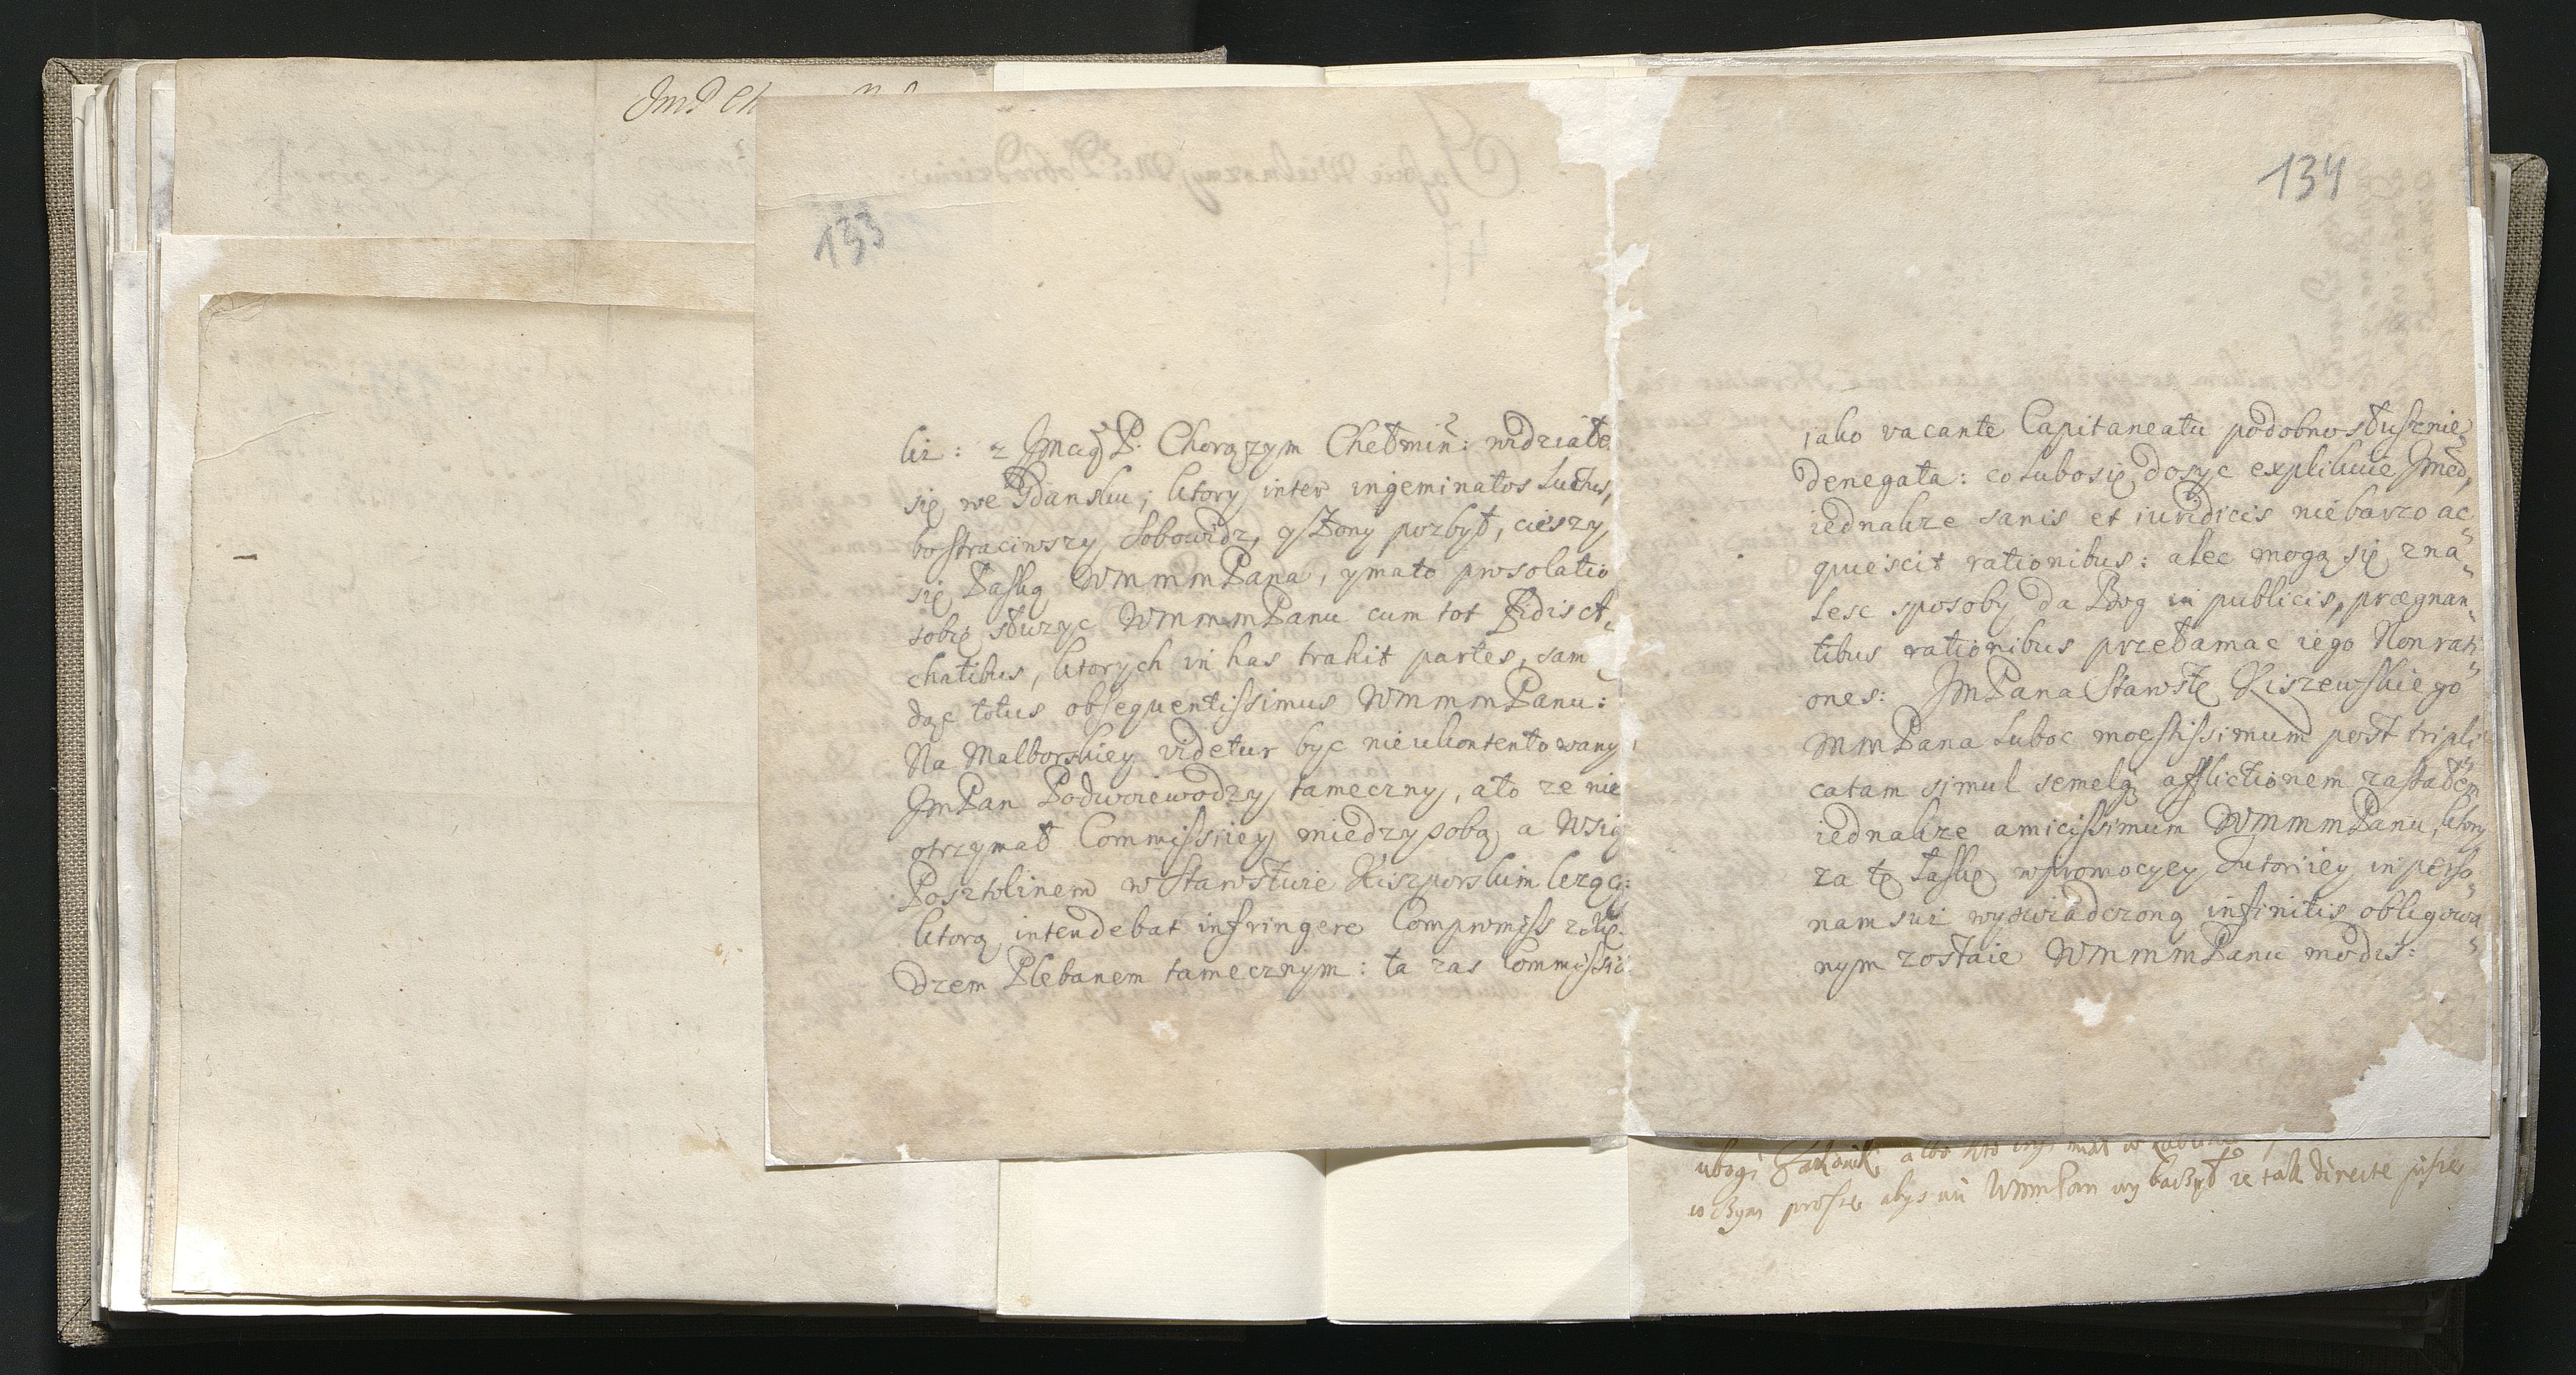 133
liz: z Jmcią P. Chorązym Chełmin: widziałe
się we Gdansku; ktory inter ingeminatos luctus,
bo straciwszy Sobowidz, y Zony pozbył, cieszy
się Łaską WmmmPana, y ma to pro solatio
sobię słuzyc WmmmPanu cum tot
chatibus, ktorych in has trahit partes, sam
dąc totus obsequentissimus WmmmPanu:
Na Malborskiey videtur byc nieukontentowany
JmPan Podwoiewodzy tameczny, a to ze nie
otrzymał Commissiey miedzy sobą a Wsią
Posztolinem w Starostwie Kiszporskim lezącą:
ktorą intendebat infringere Compromiss z Xię
dzem Plebanem tamecznym: ta zas Commissia
134
iako vacante Capitaneatu podobno słusznie
denegata: co lubo się dosyc explikuie Jmci,
iednakze sanis et iuridicis niebarzo ac
quiescit rationibus: alec mogą się zna
lesc sposoby da Bog in publicis, praegnan
tibus rationibus przełamac iego Non rati
ones: JmPana Starostę Kiszewskiego
MmPana luboc moestissimum post tripli
catam simul semelq afflictionem zastałem
iednakze amicissimum WmmmPanu, ktory
za tę Łaskę w promocyey Tutoriiey in perso
nam sui wyswiadczoną infinitis obligowa
nym zostaie WmmmPanu modis:
ubogi albo kto iny miał w
w czym proszę abys mi WmmPan wybaczył ze tak directe piszę